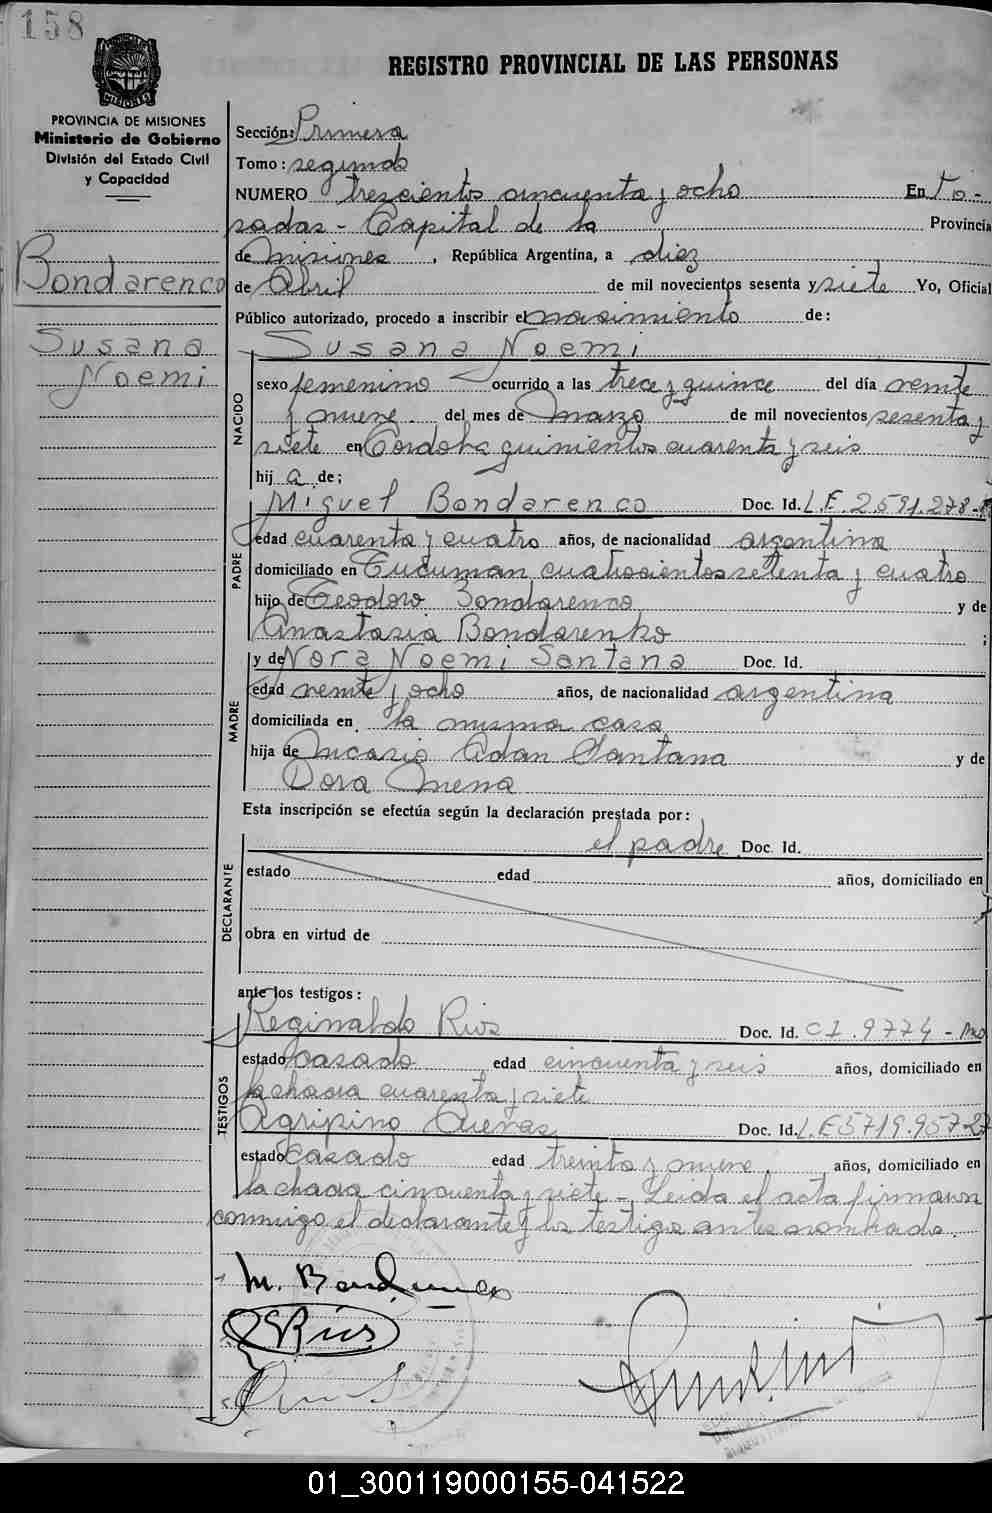 158
REGISTRO PROVINCIAL DE LAS PERSONAS
MISIONES
PROVINCIA DE MISIONES
Ministerio de Gobierno
División del Estado Civil
y Capacidad
Bondarenco
Susana
Noemi
Sección: Primera
Tomo: segundo
NUMERO trescientos cincuenta y ocho En Po-
sadas - Capital de la Provincia
de Misiones, República Argentina, a diez
de Abril de mil novecientos sesenta y siete Yo, Oficial
Público autorizado, procedo a inscribir el nacimiento de:
Susana Noemi
NACIDO
sexo femenino ocurrido a las trece y quince del día veinte
y nueve del mes de Marzo de mil novecientos sesenta y
siete en Cordoba quinientos cuarenta y seis
hij a de:
PADRE
Miguel Bondarenco Doc. Id. L.E. 2.591.278
edad cuarenta y cuatro años, de nacionalidad argentina
domiciliado en Tucuman cuatrocientos setenta y cuatro
hijo de Teodoro Bondarenco y de
Anastasia Bondarenko ;
MADRE
y de Nora Noemi Santana Doc. Id.
edad veinte y ocho años, de nacionalidad argentina
domiciliada en la misma casa
hija de Incasio Adan Santana y de
Dora Mena
Esta inscripción se efectúa según la declaración prestada por:
DECLARANTE
el padre Doc. Id.
estado edad años, domiciliado en
obra en virtud de
ante los testigos:
TESTIGOS
Reginaldo Rios Doc. Id. C I. 9774 -
estado casado edad cincuenta y seis años, domiciliado en
la chacra cuarenta y siete
Agripino Cuevas Doc. Id. L.E 5719.957-27
estado casado edad treinta y nueve años, domiciliado en
la chacra cincuenta y siete - Leida el acta firmaron
conmigo el declarante y los testigos antes nombrado.
M. Bondarenco
Rios
01_300119000155-041522